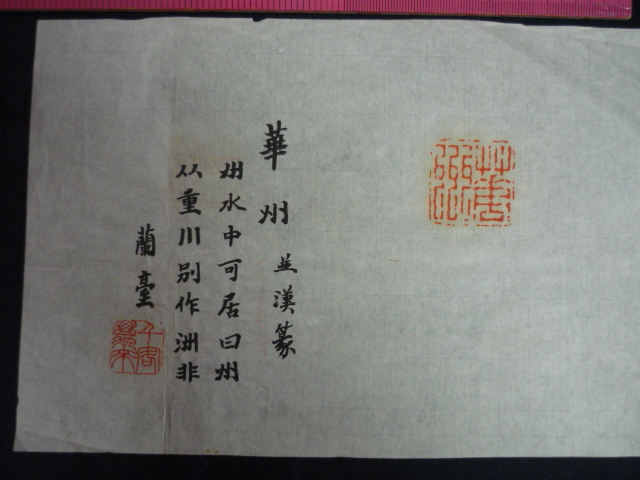 華州 並漢篆
州水中可居曰州
从重川別作洲非
蘭臺